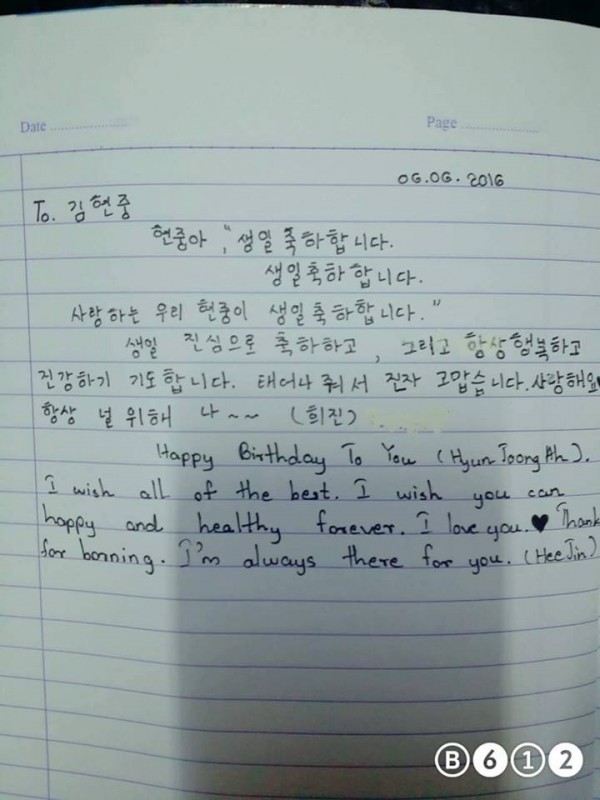 Date
Page
06.06.2016
To. 김현중
현중아, "생일 축하합니다.
생일축하합니다.
사랑하는 우리 현중이 생일축하합니다."
생일 진심으로 축하하고, 그리고 항상행복하고
진강하기 기도합니다. 태어나 줘서 진자 고맙습니다. 사랑해요♥
항상 널 위해 나~~ (희진)
Happy Birthday To You (Hyun Joong Ah).
I wish all of the best. I wish you can
happy and healthy forever. I love you.♥ Thank
for bonning. I'm always there for you. (Hee Jin)
B612